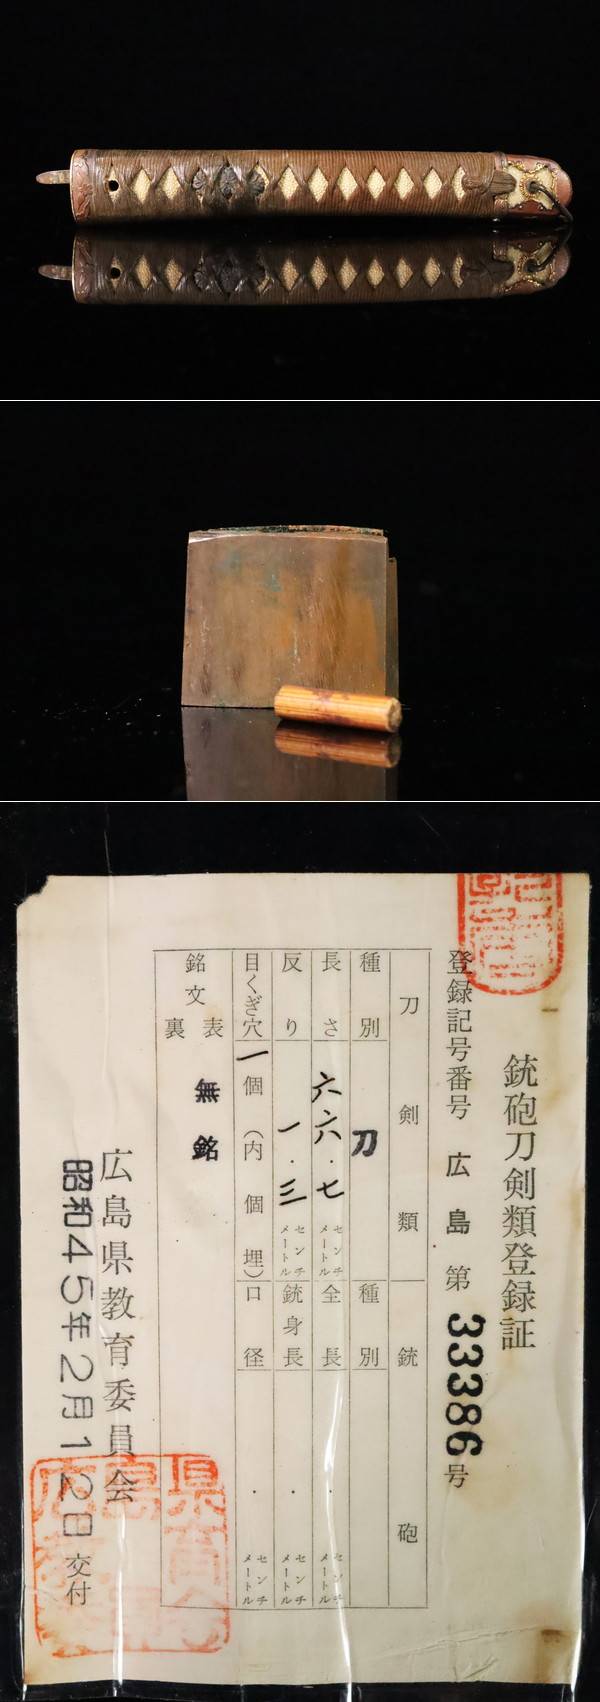 銃砲刀剣類登録証
登録記号番号 広島 第 33386 号
刀剣類 銃砲
種別 刀 種別
長さ 六六.七 センチメートル 全長 . センチメートル
反り 一.三 センチメートル 銃身長 . センチメートル
目くぎ穴 一個(内 個埋) 口径 . センチメートル
銘文 表 無銘
裏
広島県教育委員会
昭和45年2月12日交付